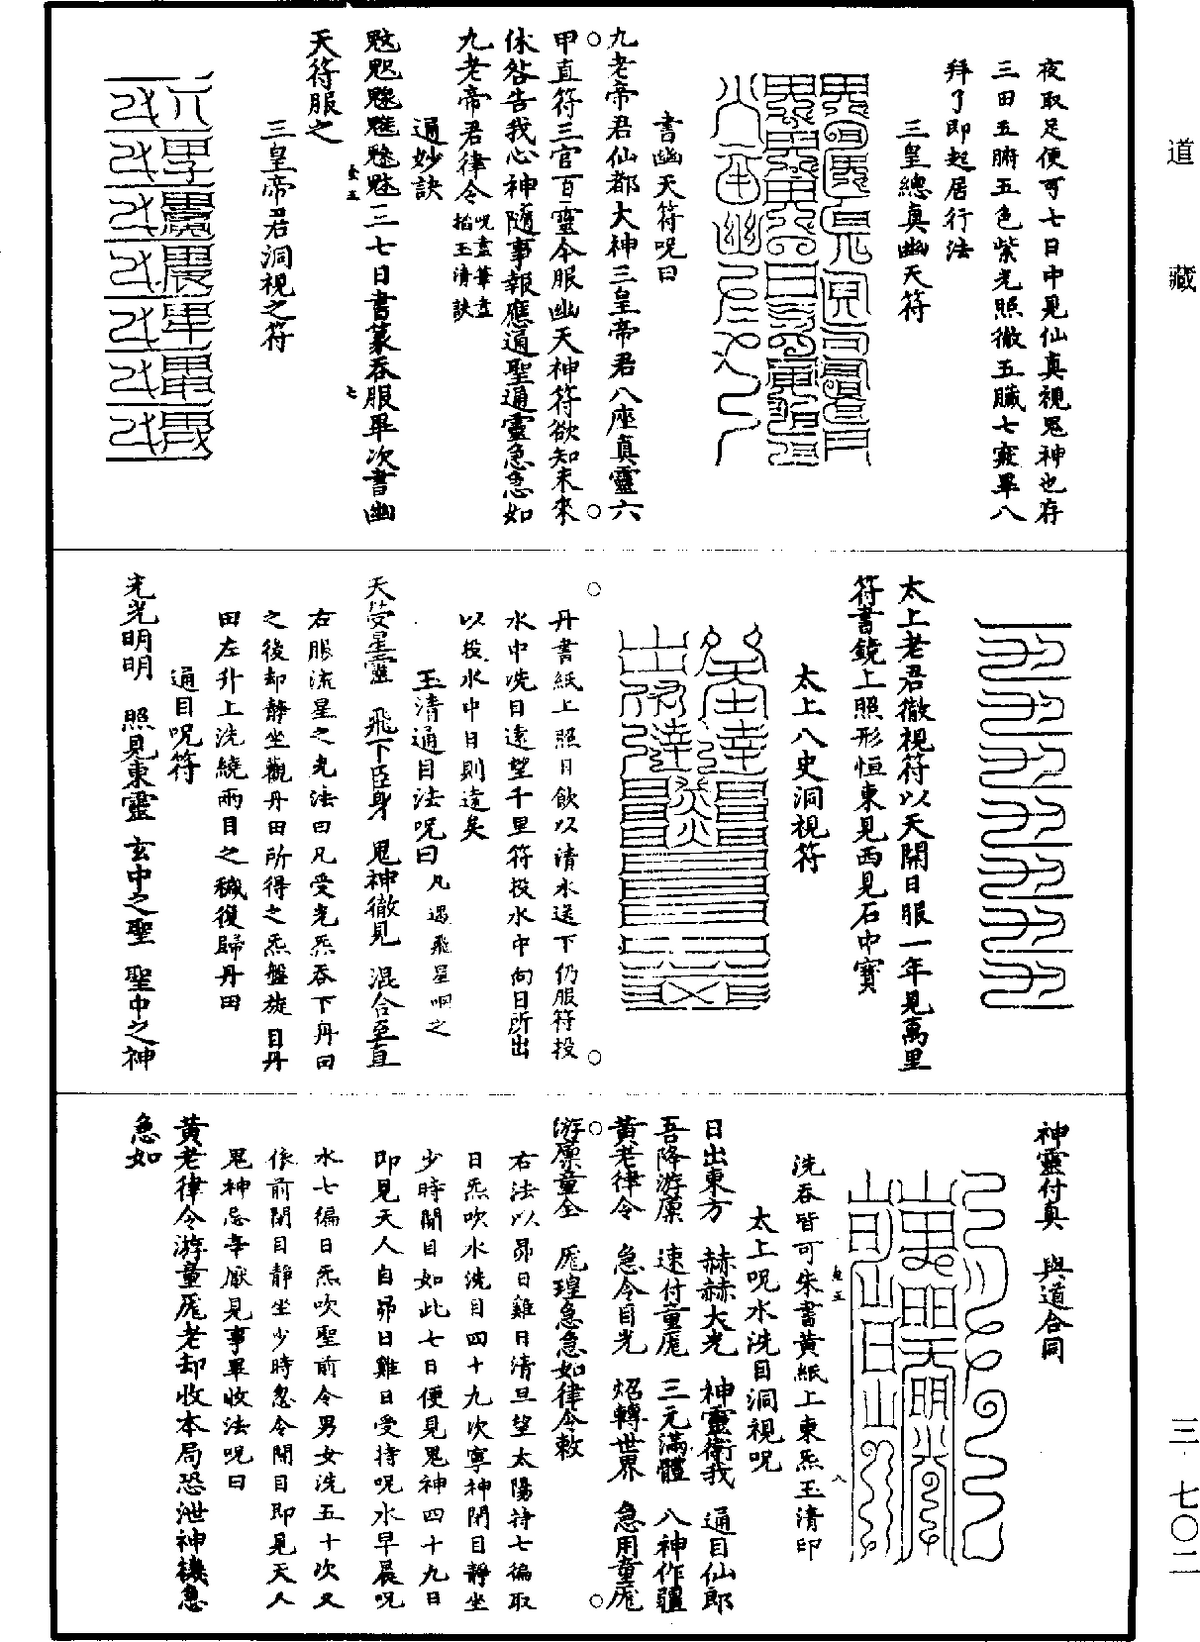 道藏
三·七〇二
夜取足便可七日中見仙真視鬼神也存
三田五腑五色紫光照徹五臟七竅畢八
拜了即起居行法
三皇總真幽天符
書幽天符呪曰
九老帝君仙都大神三皇帝君八座真靈六
甲直符三官百靈今服幽天神符欲知未來
休咎告我心神隨事報應通聖通靈急急如
九老帝君律令呪畫筆畫掐玉清訣
通妙訣
三七日書篆吞服畢次書幽
天符服之
三皇帝君洞視之符
太上老君徹視符以天開日服一年見萬里
符書鏡上照形恒東見西見石中寶
太上八史洞視符
丹書紙上照日飲以清水送下仍服符投
水中洗目遠望千里符投水中向日所出
以投水中目則遠矣
玉清通目法呪曰凡遇飛星呵之
天熒星靈　飛下臣身　鬼神徹見　混合至直
右服流星之光法曰凡受光炁吞下丹田
之後却靜坐觀丹田所得之炁盤旋目丹
田左升上洗繞兩目之穢復歸丹田
通目呪符
光光明明　照見東靈　玄中之聖　聖中之神
神靈付真　與道合同
洗吞皆可朱書黃紙上東炁玉清印
太上呪水洗目洞視呪
日出東方　赫赫大光　神靈衛我　通目仙郎
吾降游廩　速付童厖　三元滿體　八神作疆
黃老律令　急令目光　炤轉世界　急用童厖
游廩童全　厖瑝急急如律令敕
右法以昴日雞日清旦望太陽持七徧取
日炁吹水洗目四十九次寧神閉目靜坐
少時開目如此七日便見鬼神四十九日
即見天人自昴日雞日受持呪水早晨呪
水七徧日炁吹聖前令男女洗五十次又
依前閉目靜坐少時忽令開目即見天人
鬼神忌幸厭見事畢收法呪曰
黃老律令游童厖老却收本局恐泄神機急
急如